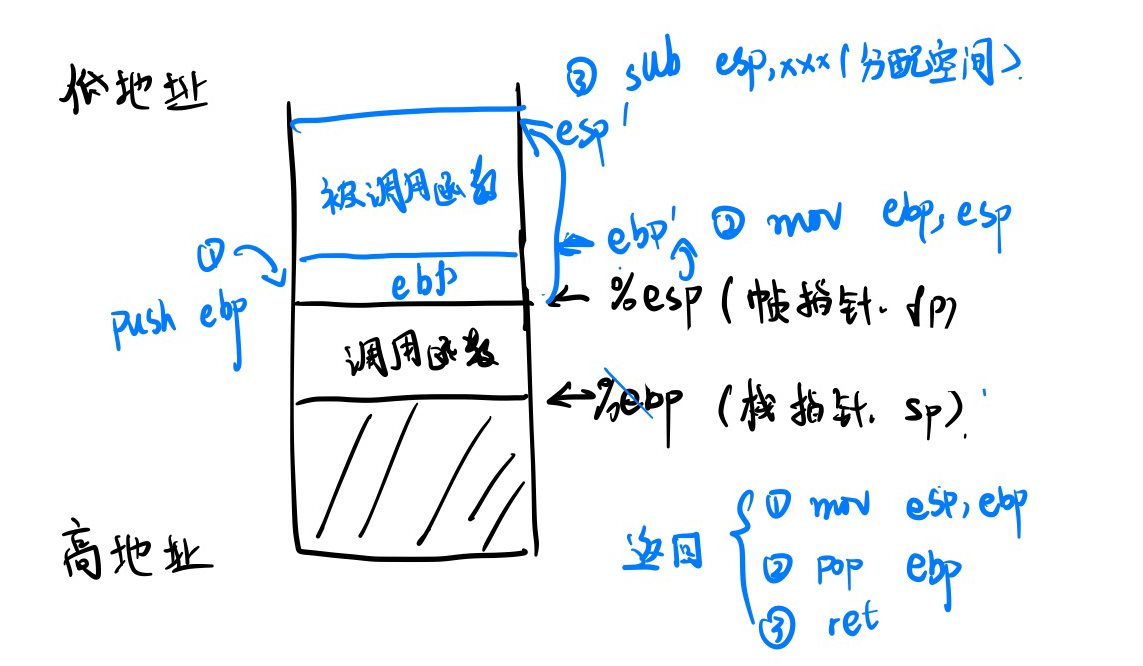 低地址
③ sub esp,xxx(分配空间)
esp'
被调用函数
ebp' ② mov ebp,esp
①
push ebp
ebp
%esp (帧指针. fp)
调用函数
%ebp (栈指针. sp)
高地址
返回
① mov esp,ebp
② pop ebp
③ ret